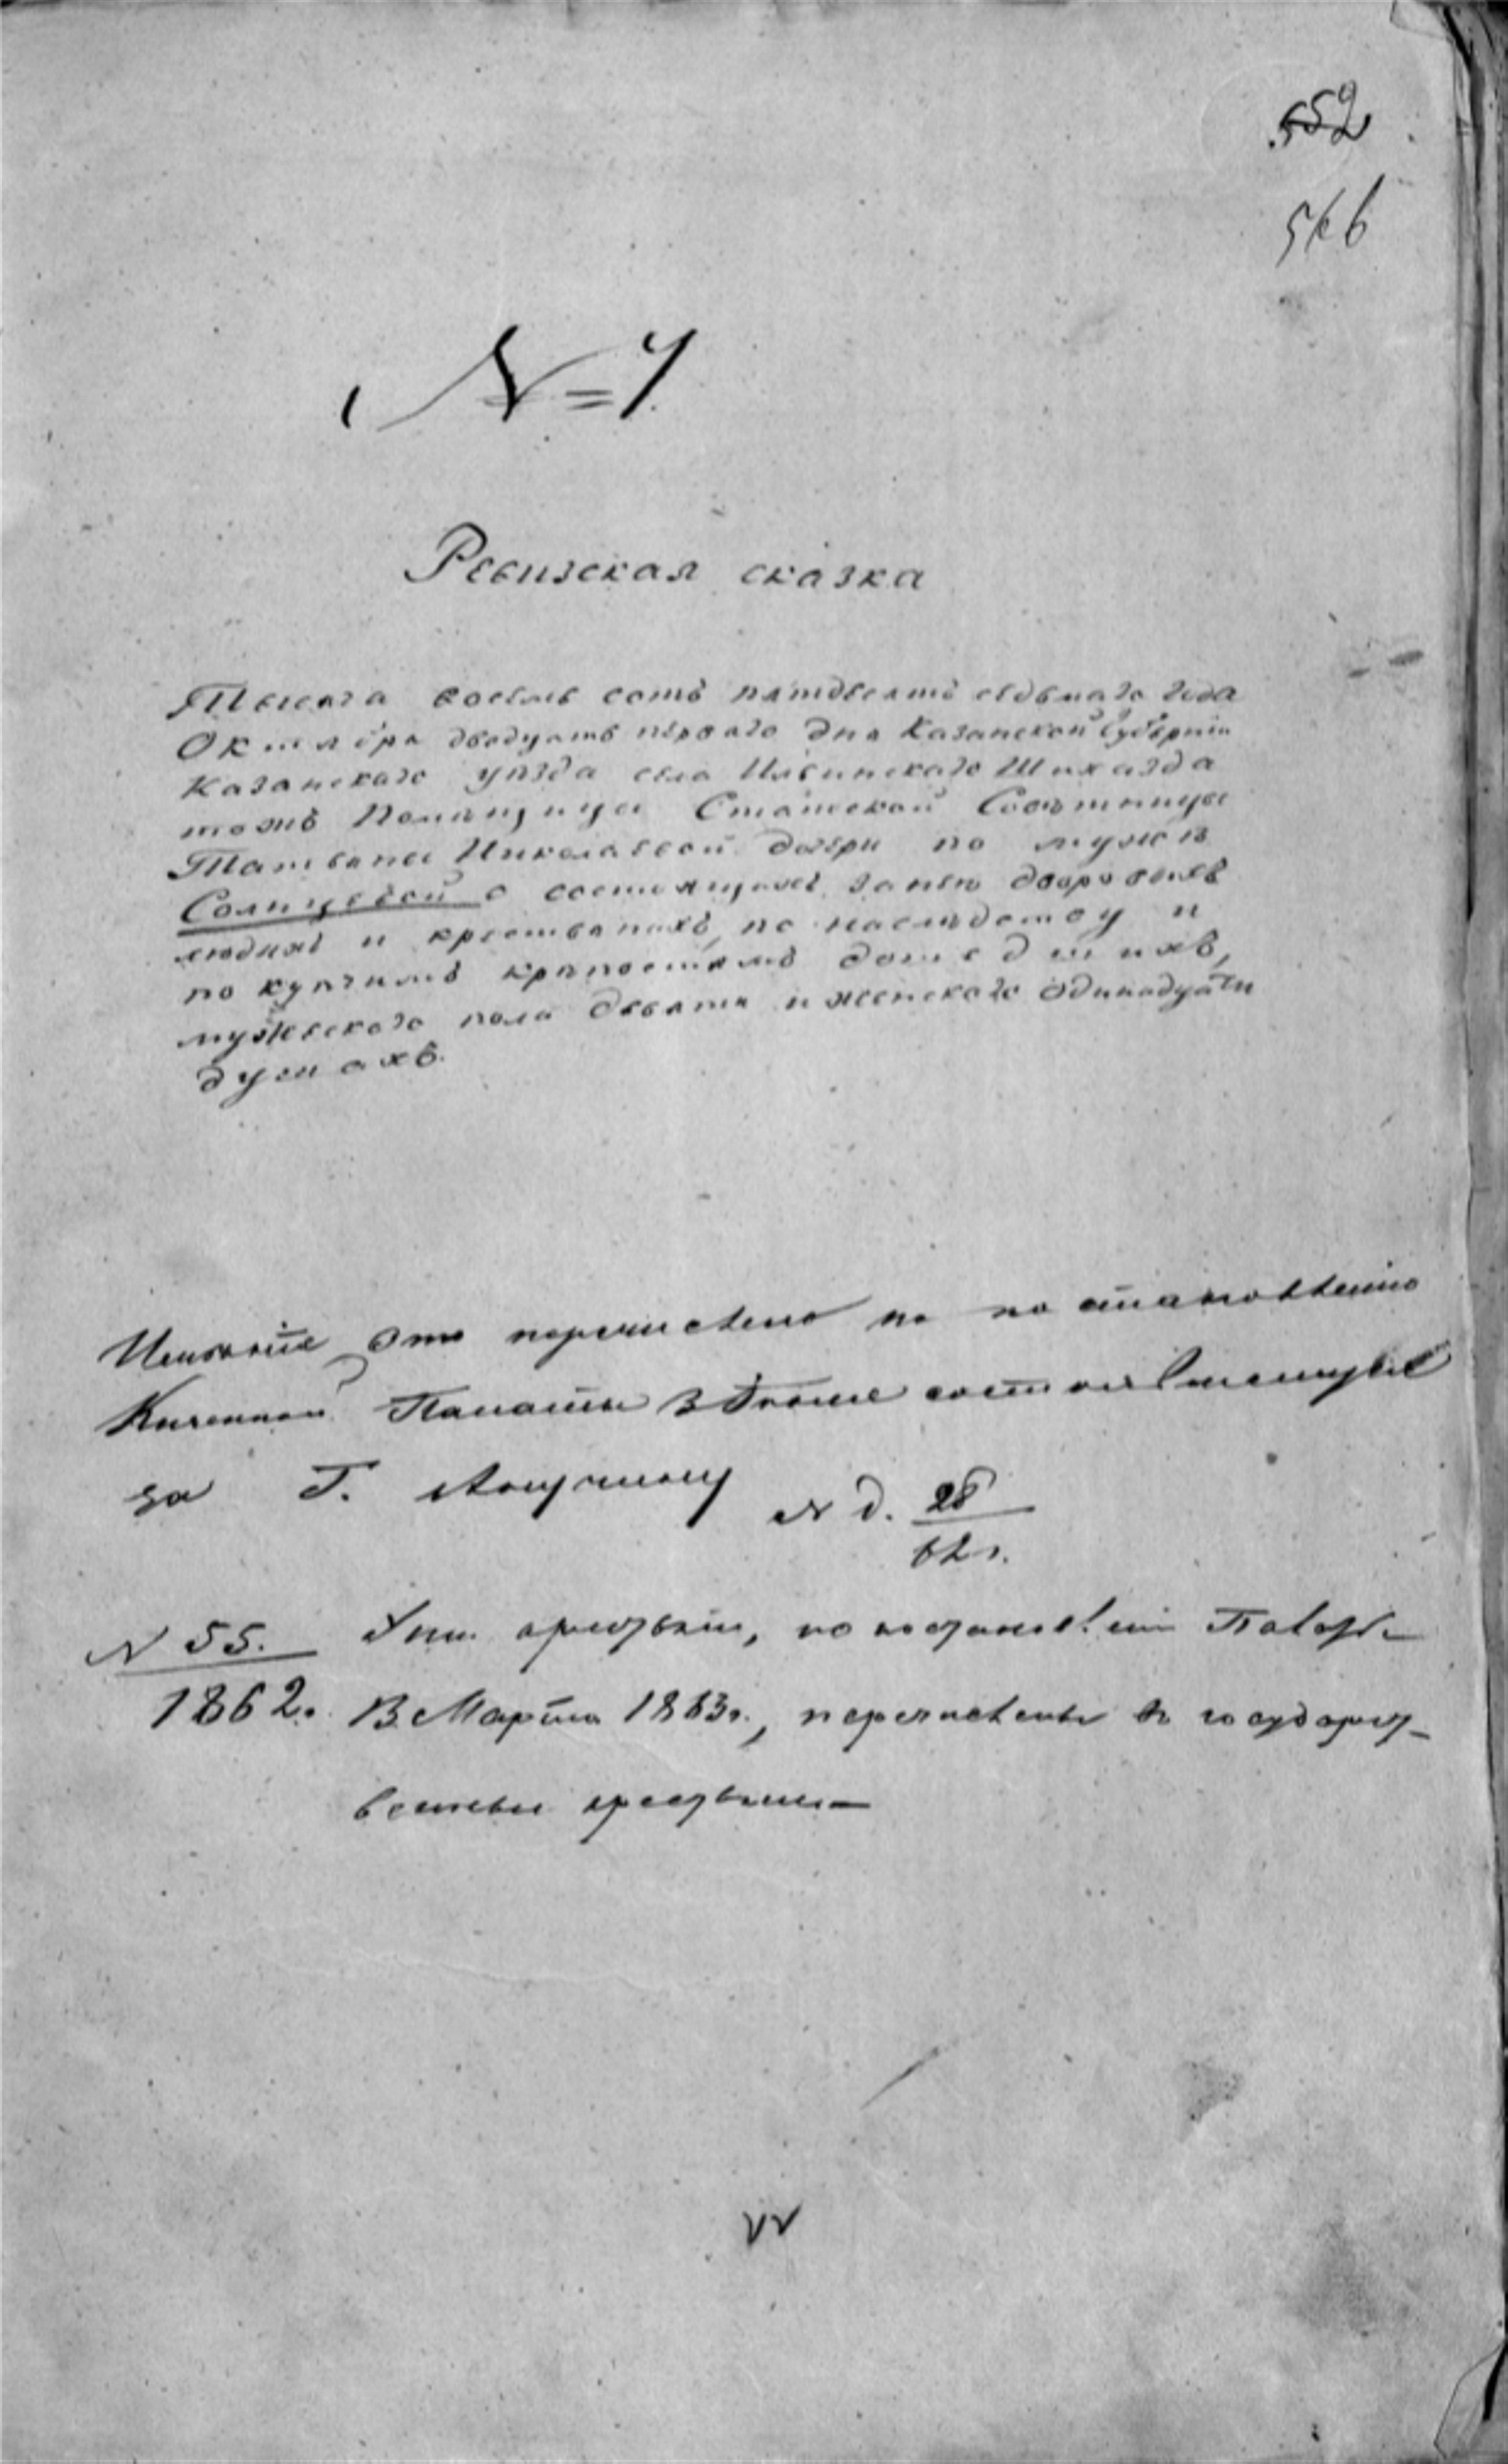 552
566
№ 7
Ревизская сказка
Тысяча восемь сотъ пятдесятъ седьмаго года
Октября двадцать перваго дня Казанской Губерніи
Казанскаго уѣзда села Ильинскаго Шихазда
тожъ Помѣщицы Статской Совѣтницы
Татьяны Николаевой дочери по мужѣ
Солнцевой о состоящихъ за нею дворовыхъ
людяхъ и крестьянахъ, по наслѣдству и
по купчимъ крѣпостямъ дошедшихъ,
мужескаго пола девяти и женскаго одинадцати
душахъ.
Имѣніе это перечислено по постановленію
Казенной Палаты
за Г. д. 28
62 г.
N 55. крестьяне, по постановленію Палаты
1862. Марта 1863 г., перечислены въ государст-
венные крестьяне.